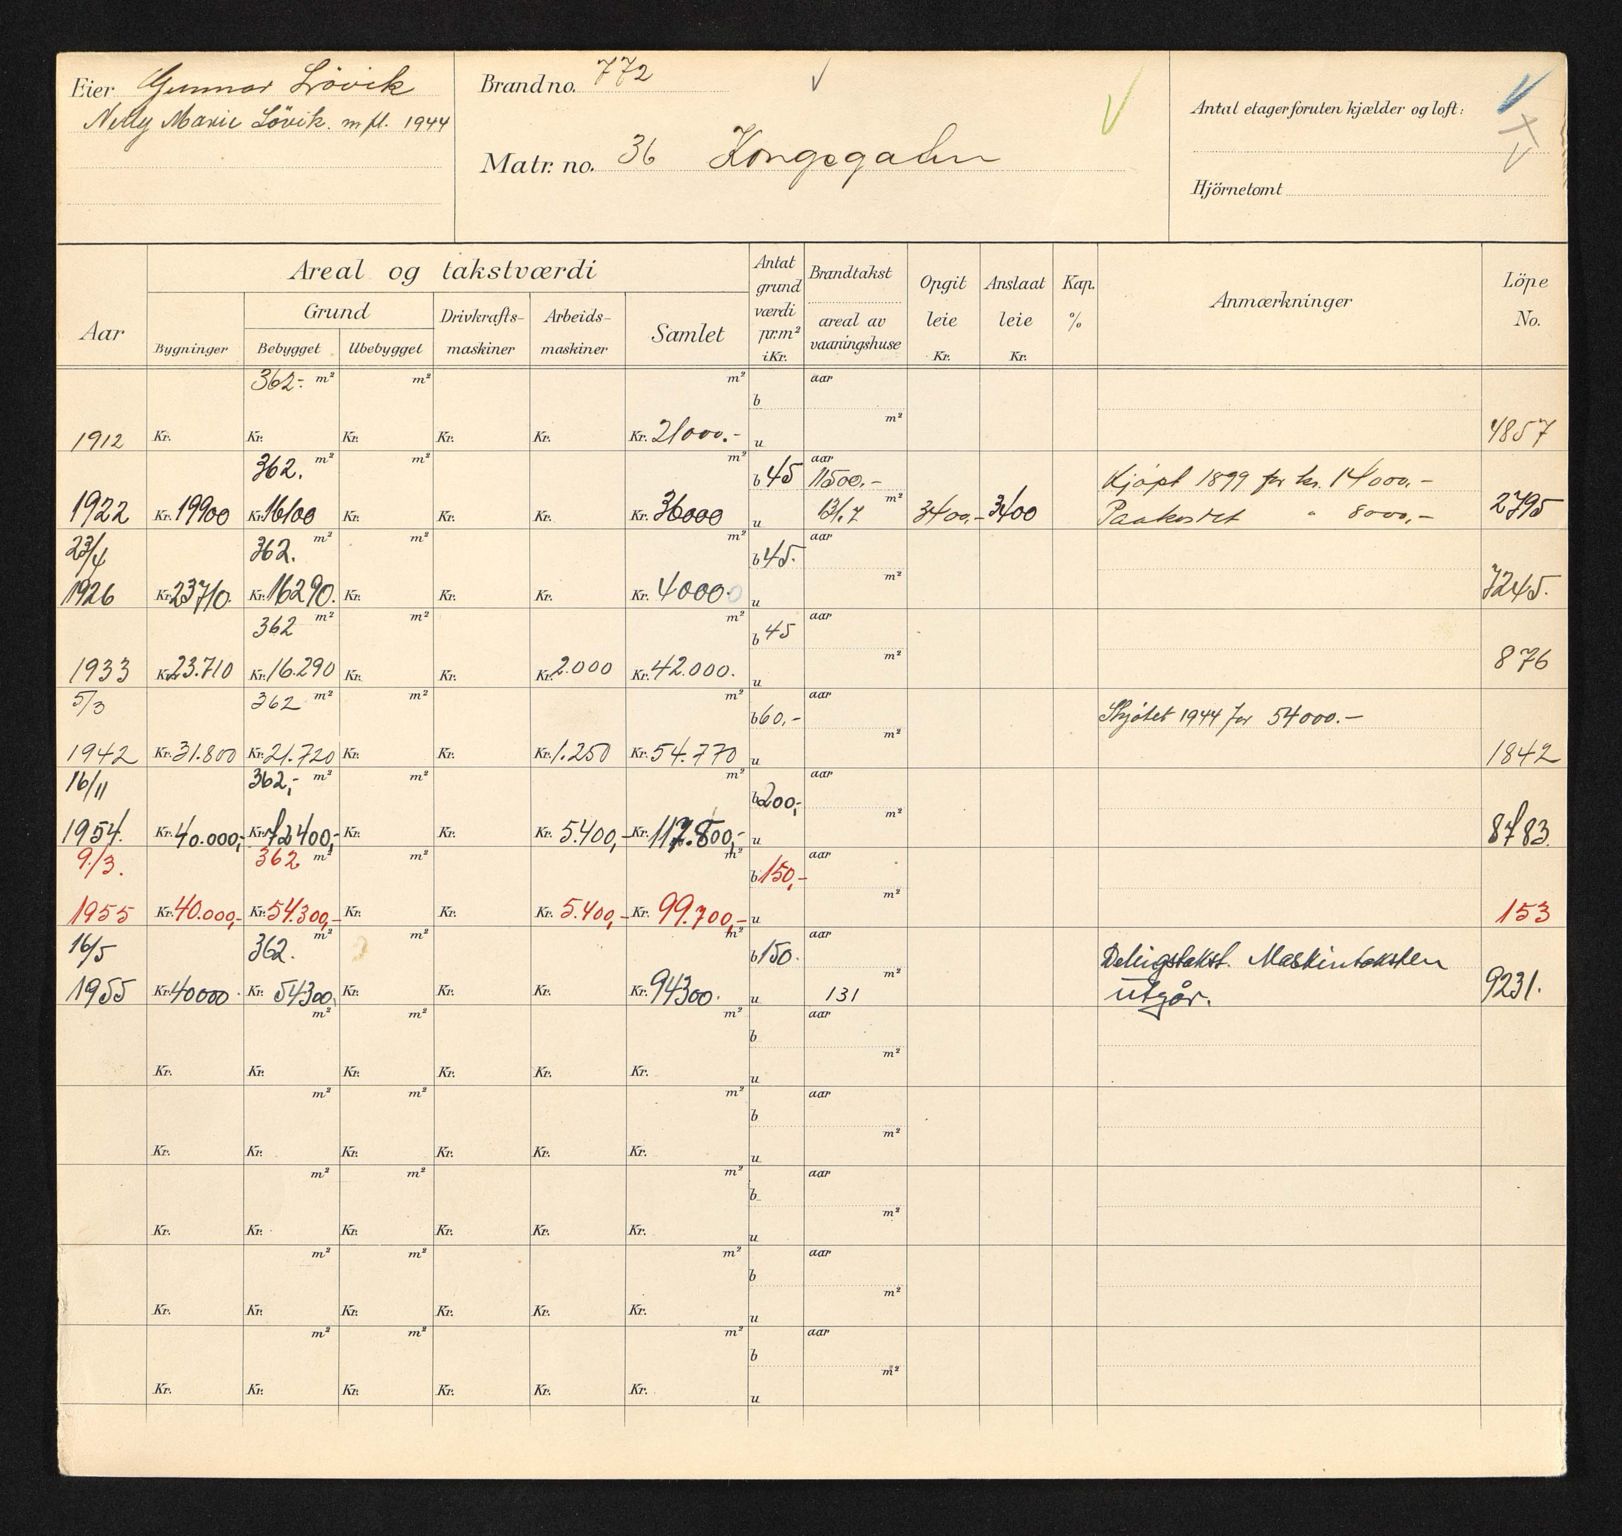 Eier Gunnar Lövik
Nelly Marie Lövik. m fl. 1944
Brand no. 772
Matr. no. 36 Kongsgaten
Antal etager foruten kjælder og loft:
Hjörnetomt
Aar
Areal og takstværdi
Grund
Bygninger
Bebygget
Ubebygget
Drivkrafts-
maskiner
Arbeids-
maskiner
Samlet
Antat
grund
værdi
pr.m²
i Kr.
Brandtakst
areal av
vaaningshuse
Opgit
leie
Kr.
Anslaat
leie
Kr.
Kap.
%
Anmærkninger
Löpe
No.
362.- m² m² m² aar
b
m²
1912 Kr. Kr. Kr. Kr. Kr. Kr. 21000.- u 4857
362. m² m² m² b 45 aar 11500.- Kjøpt 1899 for kr. 14000.-
1922 Kr. 19900 Kr. 16100 Kr. Kr. Kr. Kr. 36000 u 131.7 m² 3400,- 3400 Paakostet " 8000,- 2795
23/4 362. m² m² m² b 45. aar
m²
1926 Kr. 23710. Kr. 16290. Kr. Kr. Kr. Kr. 40000 u 7245.
362 m² m² m² b 45 aar
m²
1933 Kr. 23.710 Kr. 16.290 Kr. Kr. Kr. 2.000 Kr. 42.000. u 876
5/3 362 m² m² m² b 60,- aar Skjøtet 1944 for 54000.-
m²
1942 Kr. 31.800 Kr. 21.720 Kr. Kr. Kr. 1.250 Kr. 54.770 u 1842
16/11 362,- m² m² m² b 200,- aar
m²
1954. Kr. 40.000,- Kr. 72400,- Kr. Kr. Kr. 5.400,- Kr. 117.800,- u 8783.
9/3. 362 m² m² m² b 150,- aar
m²
1955 Kr. 40.000,- Kr. 54.300,- Kr. Kr. Kr. 5.400,- Kr. 99.700,- u 153
16/5 362. m² m² m² b 150. aar Delingstakst. Maskintaksten
m²
1955 Kr. 40000. Kr. 54300. Kr. Kr. Kr. Kr. 94300. u 131 utgår. 9231.
m² m² m² aar
b
m²
Kr. Kr. Kr. Kr. Kr. Kr. u
m² m² m² aar
b
m²
Kr. Kr. Kr. Kr. Kr. Kr. u
m² m² m² aar
b
m²
Kr. Kr. Kr. Kr. Kr. Kr. u
m² m² m² aar
b
m²
Kr. Kr. Kr. Kr. Kr. Kr. u
m² m² m² aar
b
m²
Kr. Kr. Kr. Kr. Kr. Kr. u